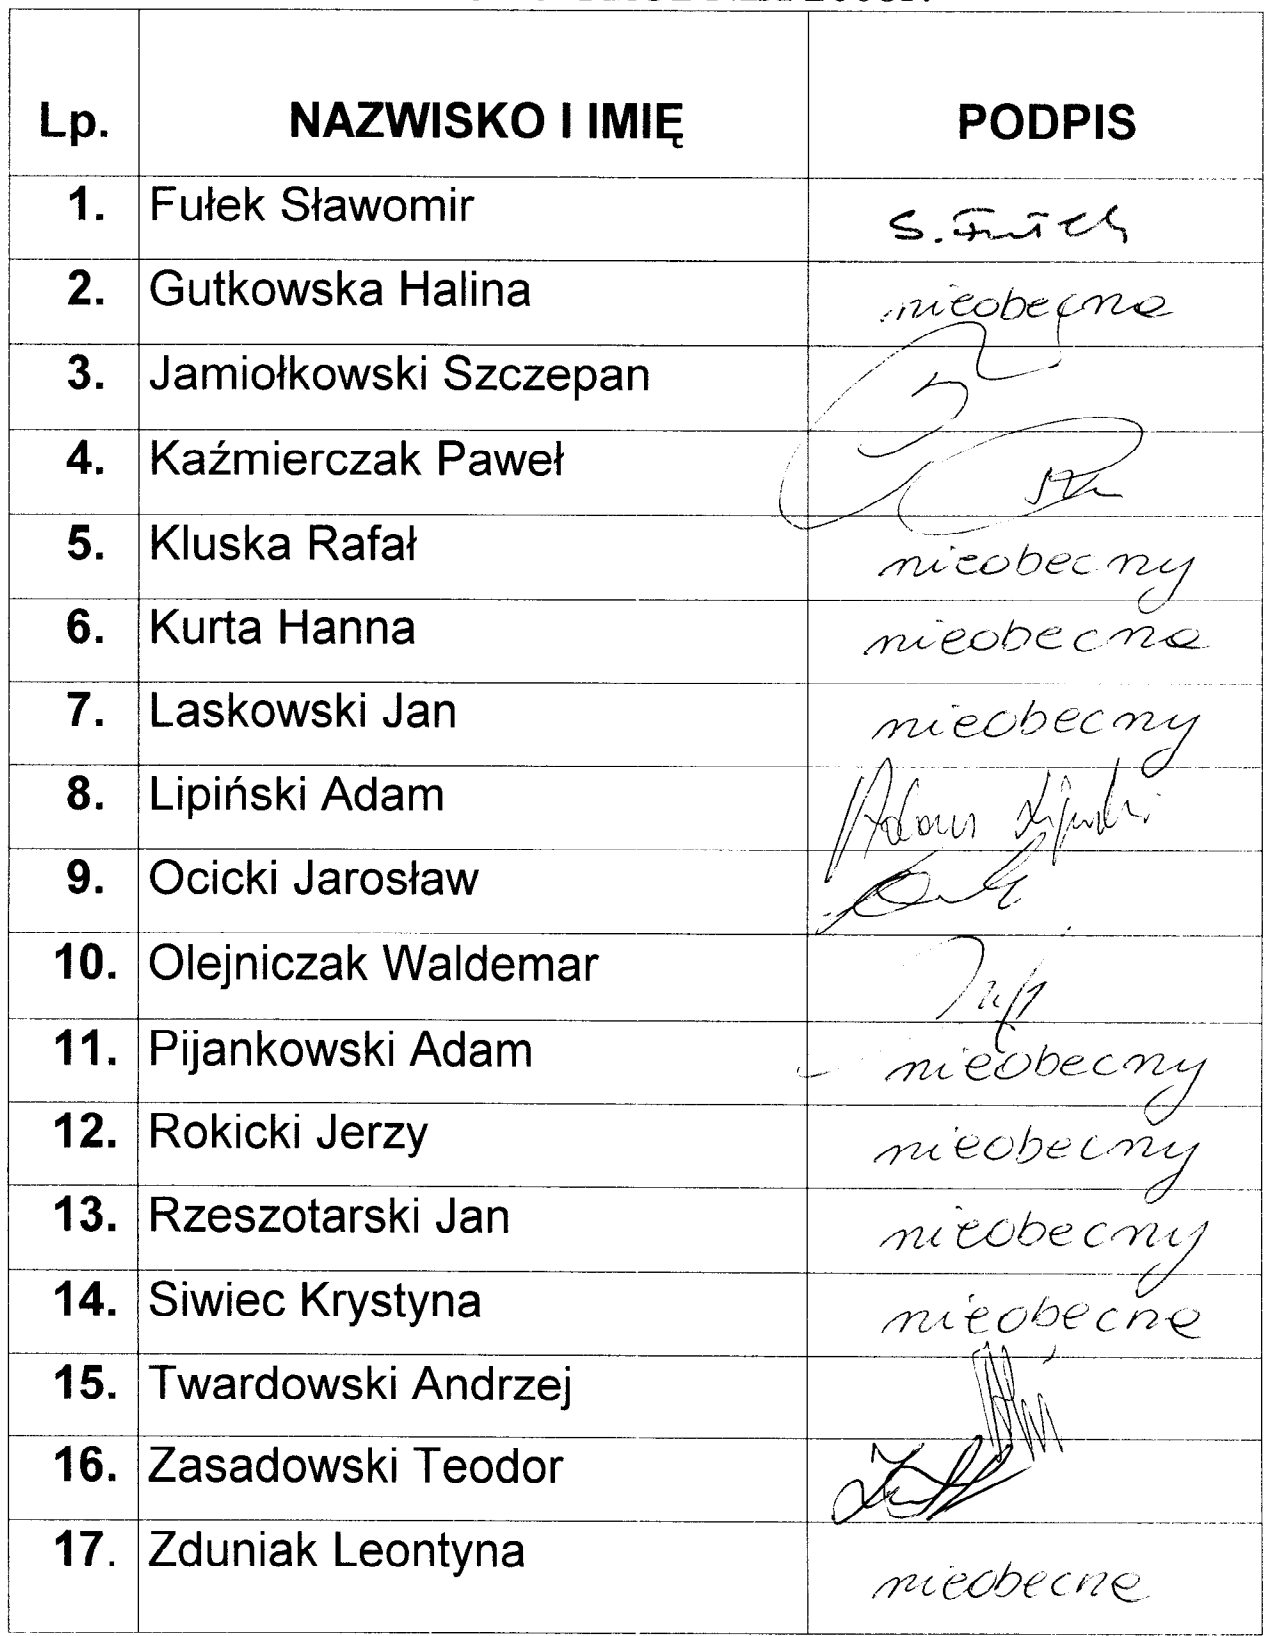 Lp. NAZWISKO I IMIĘ PODPIS
1. Fułek Sławomir S. Fułek
2. Gutkowska Halina nieobecna
3. Jamiołkowski Szczepan
4. Kaźmierczak Paweł
5. Kluska Rafał nieobecny
6. Kurta Hanna nieobecna
7. Laskowski Jan nieobecny
8. Lipiński Adam Adam Lipiński
9. Ocicki Jarosław
10. Olejniczak Waldemar
11. Pijankowski Adam nieobecny
12. Rokicki Jerzy nieobecny
13. Rzeszotarski Jan nieobecny
14. Siwiec Krystyna nieobecna
15. Twardowski Andrzej
16. Zasadowski Teodor
17. Zduniak Leontyna nieobecna